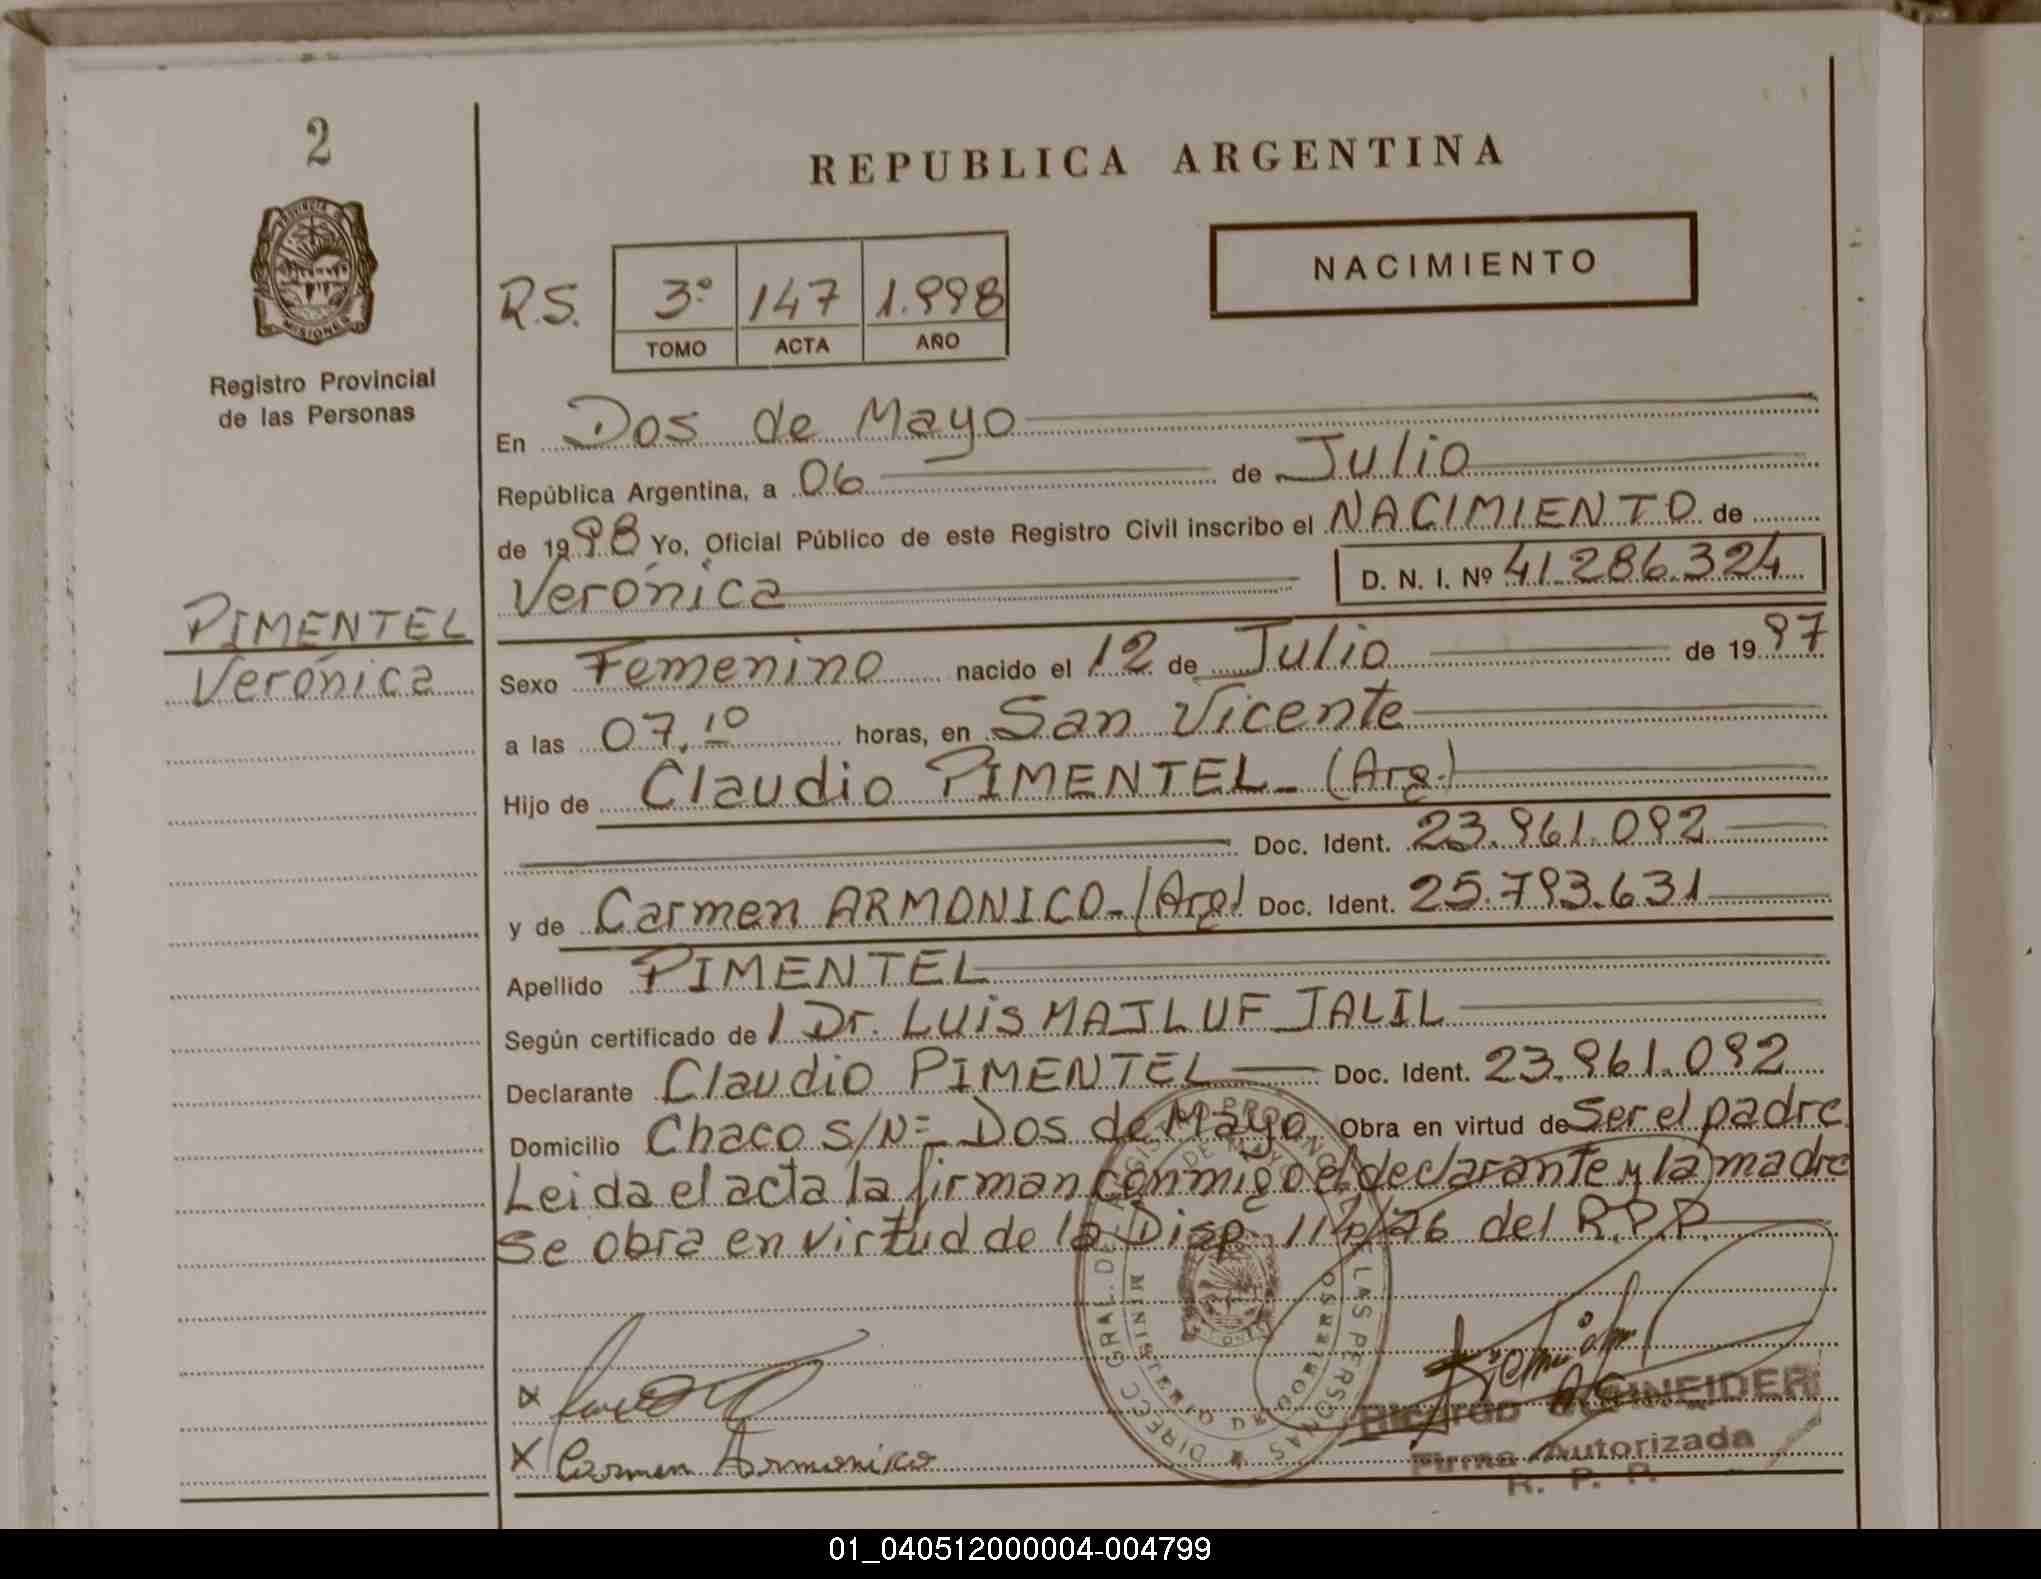 2
PROVINCIA DE
MISIONES
Registro Provincial
de las Personas
PIMENTEL
Verónica
REPUBLICA ARGENTINA
NACIMIENTO
R.S. 3º 147 1.998
TOMO ACTA AÑO
En Dos de Mayo
República Argentina, a 06 de Julio
de 1998 Yo, Oficial Público de este Registro Civil inscribo el NACIMIENTO de
Verónica D. N. I. Nº 41.286.324
Sexo Femenino nacido el 12 de Julio de 1997
a las 07,10 horas, en San Vicente
Hijo de Claudio PIMENTEL_ (Arg.)
Doc. Ident. 23.961.092
y de Carmen ARMONICO_(Arg) Doc. Ident. 25.793.631
Apellido PIMENTEL
Según certificado de / Dr. LUIS MAJLUF JALIL
Declarante Claudio PIMENTEL Doc. Ident. 23.961.092
Domicilio Chaco S/Nº_ Dos de Mayo Obra en virtud de Ser el padre
Leida el acta la firman conmigo el declarante y la madre
Se obra en virtud de la Disp. del R.P.P.
DIRECC GRAL. DEL REGISTRO PROVINCIAL DE LAS PERSONAS
MINISTERIO DE GOBIERNO
X
X Carmen Armonico
Ricardo SCHNEIDER
Firma Autorizada
R. P. P.
01_040512000004-004799